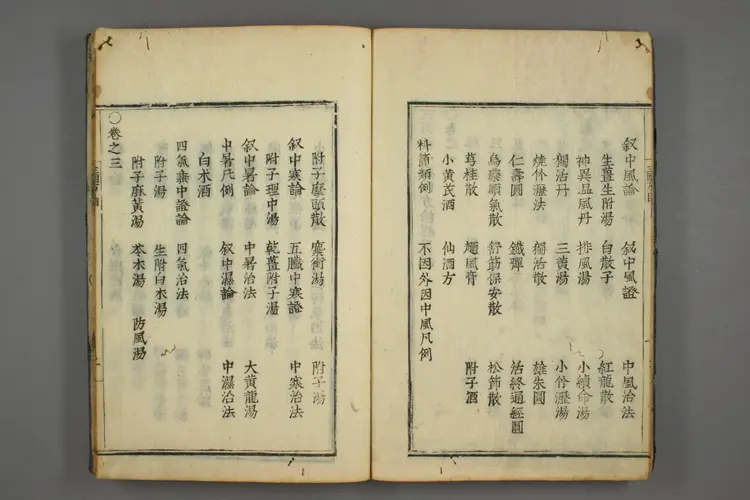 叙中風論 叙中風證 中風治法
生薑生附湯 白散子 紅龍散
神異温風丹 排風湯 小續命湯
獨活丹 三黄湯 小竹瀝湯
燒竹瀝法 獨活散 雄朱圓
仁壽圓 鐵彈 活終通經圓
烏藥順氣散 舒筋保安散 松節散
葛桂散 趂風膏 附子酒
小黄茂酒 仙酒方
料簡類例 不因外因中風凡例
附子麻頭散 寒術湯 附子湯
叙中寒論 五臓中寒證 中寒治法
附子理中湯 乾薑附子湯
叙中暑論 中暑治法 大黄龍湯
中暑凡例 叙中濕論 中濕治法
白朮酒
四氣兼中證論 四氣治法
附子湯 生附白朮湯
附子麻黄湯 岺朮湯 防風湯
○卷之三